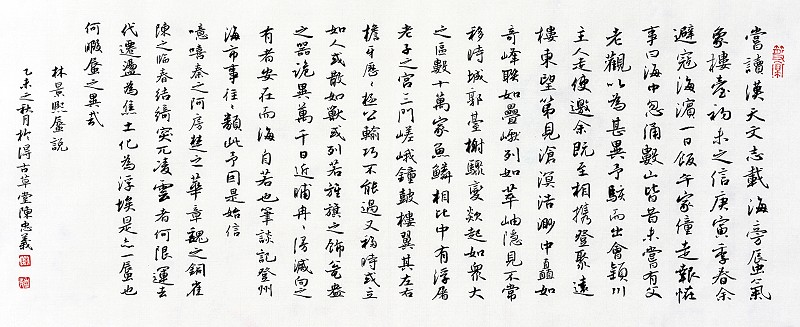 當讀漢天文志載海旁蜃氣
象樓臺初未之信庚寅季春余
避寇海濱一日飯午家僮走報怪
事曰海中忽涌數山皆昔未嘗有父
老觀以為甚異予駭而出會潁川
主人走使邀余既至相携登聚遠
樓東望第見滄溟浩渺中矗如
奇峰聯如疊巘列如崒岫隱見不常
移時城郭臺榭驟變欻起如衆大
之區數十萬家魚鱗相比中有浮屠
老子之宮三門嵯峨鐘鼓樓翼其左右
檐牙歷々極公輸巧不能過又移時或立
如人或散如獸或列若旌旗之飾瓮盎
之器詭異萬千日近晡冉々漫滅向之
有者安在而海自若也筆談記登州
海市事往々類此予因是始信
噫嘻秦之阿房楚之華章魏之銅雀
陳之臨春結綺突兀凌雲者何限運去
代遷盪為焦土化為浮埃是亦一蜃也
何暇蜃之異哉
林景熙蜃說
乙未之秋月於得古草堂陳忠義